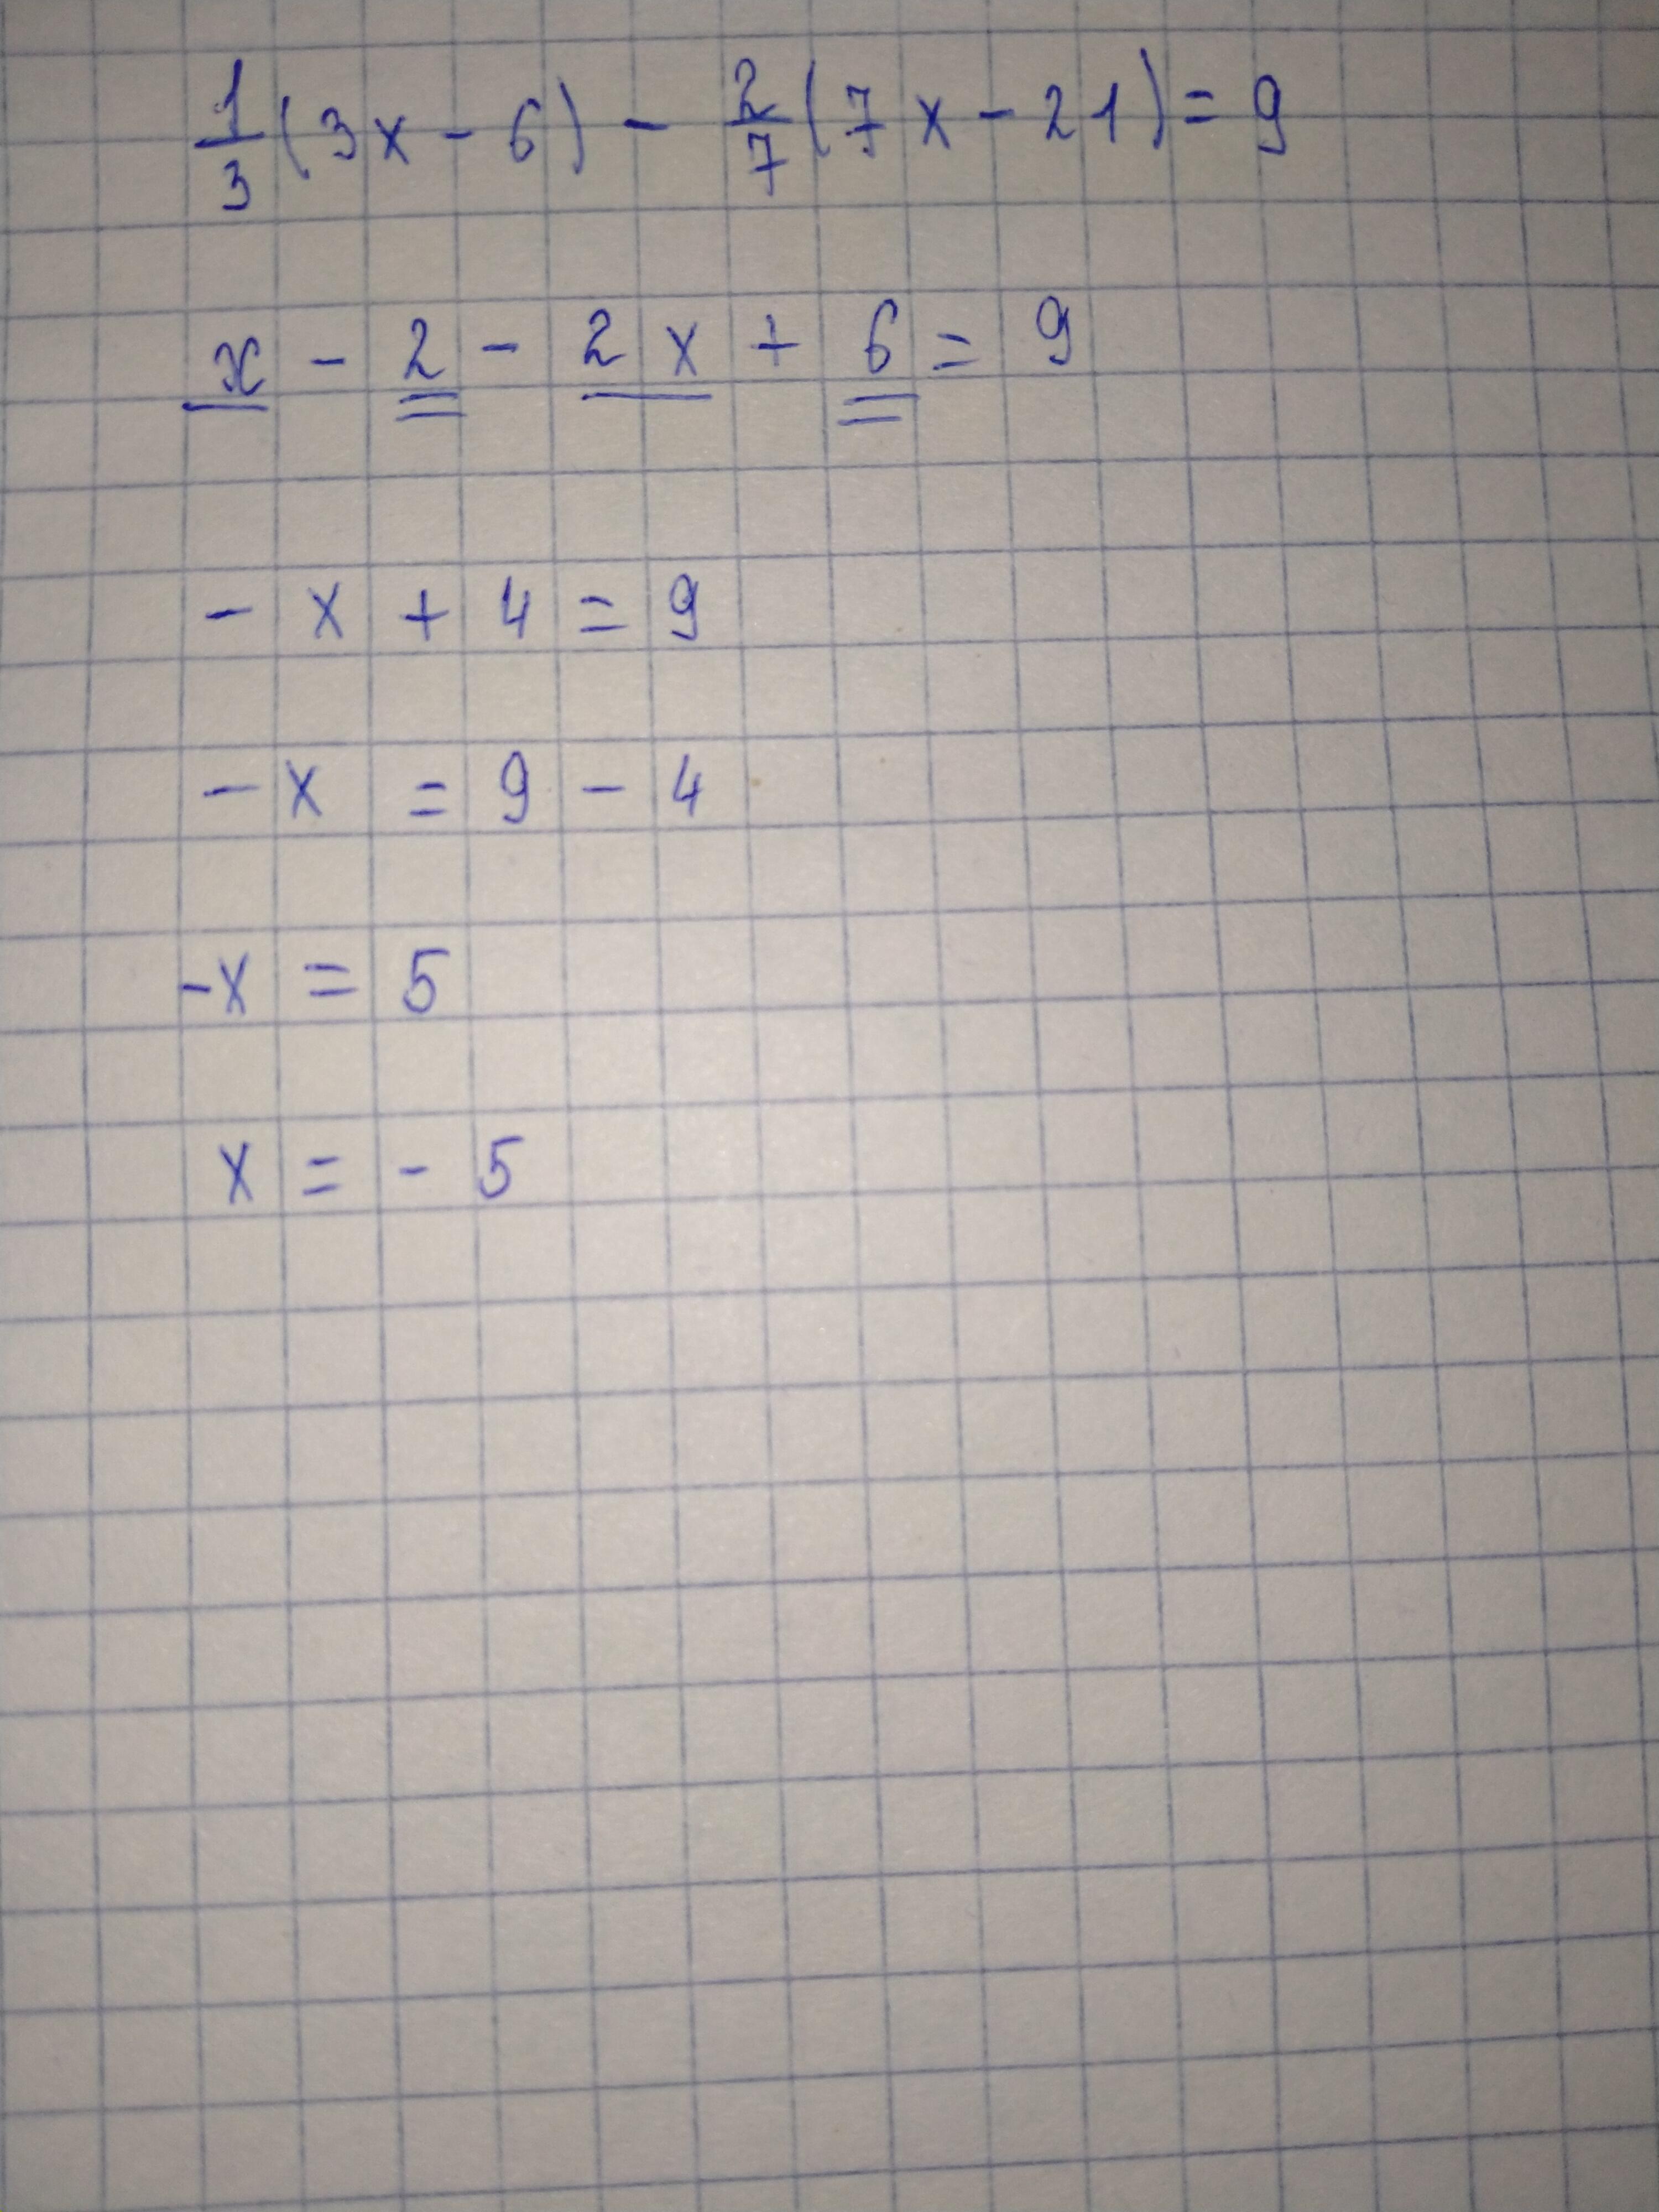 1/3 (3x - 6) - 2/7 (7x - 21) = 9
x - 2 - 2x + 6 = 9
- x + 4 = 9
- x = 9 - 4
-x = 5
x = - 5